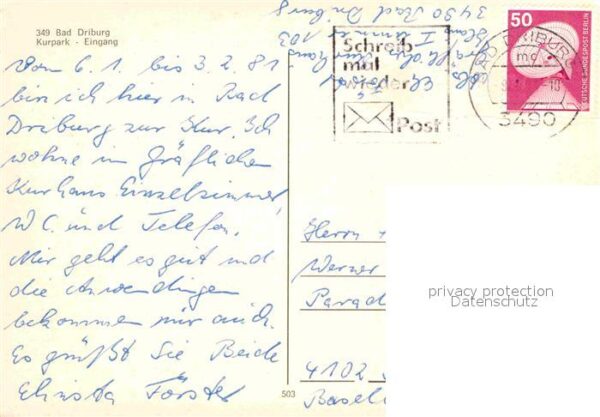 349 Bad Driburg
Kurpark - Eingang
Vom 6.1. bis 3.2.81
bin ich hier in Bad
Driburg zur Kur. Ich
wohne im Gräflichen
Kurhaus Einzelzimmer,
WC. und Telefon.
Mir geht es gut und
die Anwendungen
bekommen mir auch.
Es grüßt Sie Beide
Förster
3490 Bad Driburg
103
Schreib
mal
wieder
Post
50
DEUTSCHE BUNDESPOST BERLIN
BAD DRIBURG
mc
3490
Herrn
Werner
Parad
4102
Basel
503
privacy protection
Datenschutz